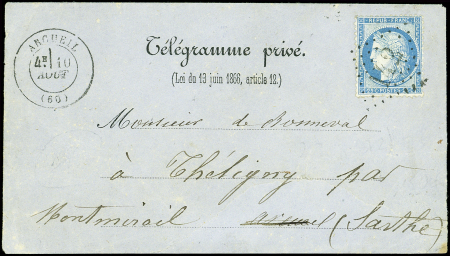 ARCUEIL
4E 10
AOUT
(60)
REPUB. FRANC.
Télégramme privé.
(Loi du 13 juin 1866, article 12.)
Monsieur de Bonneval
à Théligny par
Montmirail (Sarthe)